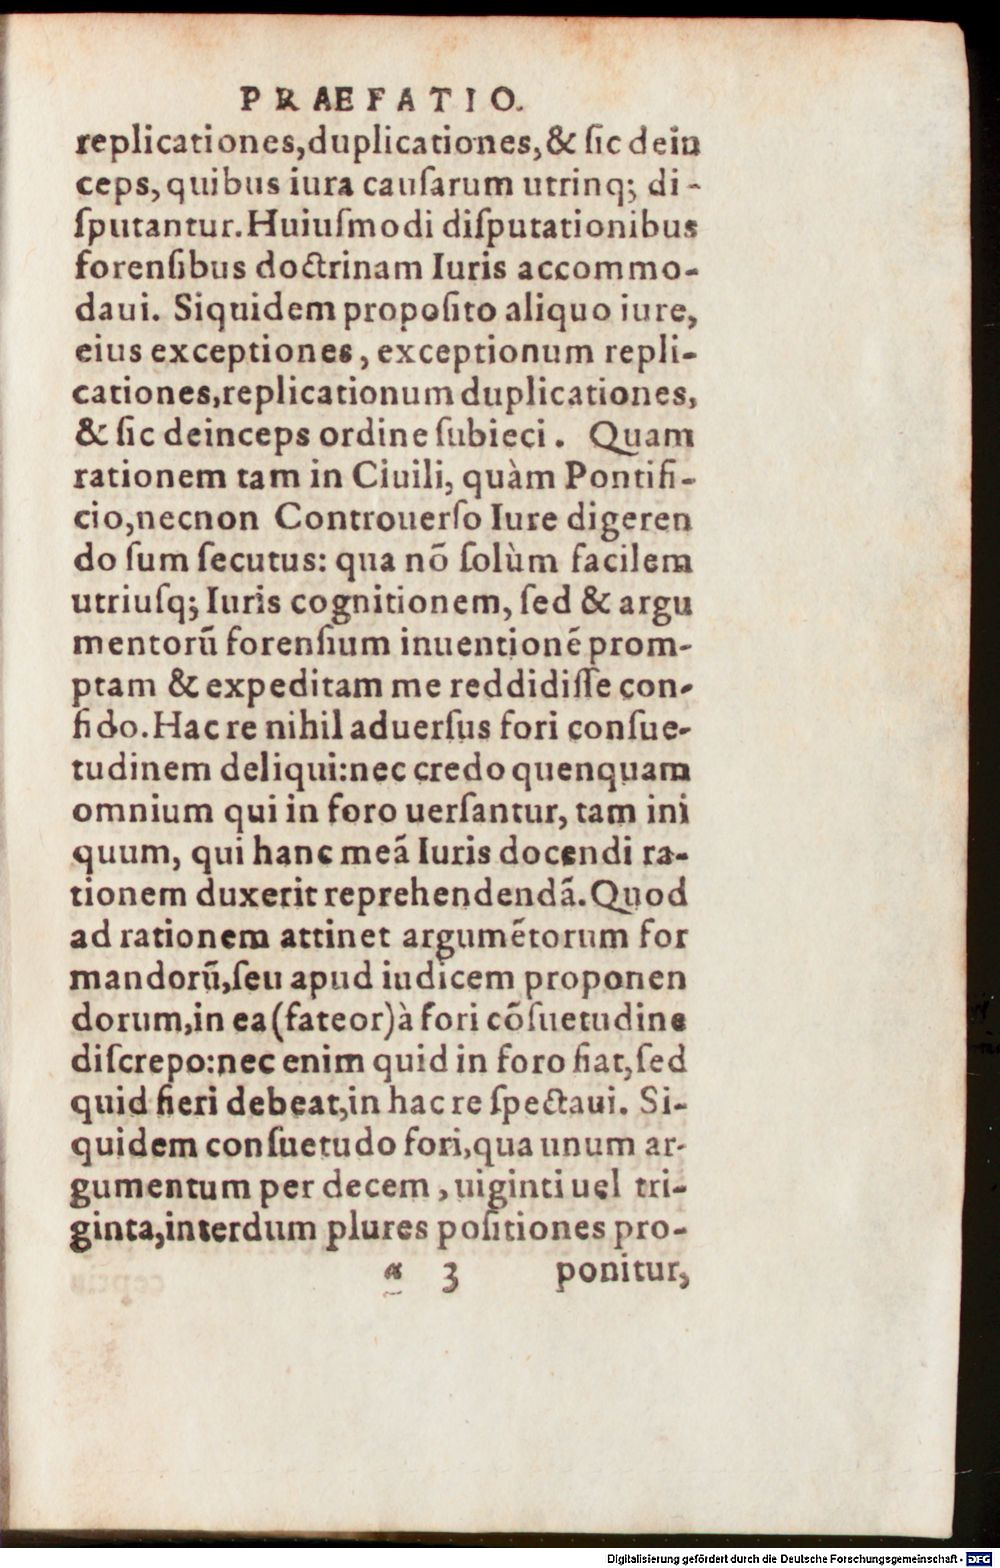 PRAEFATIO.
replicationes,duplicationes,& ſic dein
ceps, quibus iura cauſarum utrinq; di-
ſputantur. Huiuſmodi diſputationibus
forenſibus doctrinam Iuris accommo-
daui. Siquidem propoſito aliquo iure,
eius exceptiones, exceptionum repli-
cationes,replicationum duplicationes,
& ſic deinceps ordine ſubieci. Quam
rationem tam in Ciuili, quàm Pontifi-
cio,necnon Controuerſo Iure digeren
do ſum ſecutus: qua nõ ſolùm facilem
utriuſq; Iuris cognitionem, ſed & argu
mentorũ forenſium inuentionẽ prom-
ptam & expeditam me reddidiſſe con-
fido. Hac re nihil aduerſus fori conſue-
tudinem deliqui:nec credo quenquam
omnium qui in foro uerſantur, tam ini
quum, qui hanc meã Iuris docendi ra-
tionem duxerit reprehendendã. Quod
ad rationem attinet argumẽtorum for
mandorũ,ſeu apud iudicem proponen
dorum,in ea (fateor) à fori cõſuetudine
diſcrepo:nec enim quid in foro fiat,ſed
quid fieri debeat,in hac re ſpectaui. Si-
quidem conſuetudo fori,qua unum ar-
gumentum per decem, uiginti uel tri-
ginta,interdum plures poſitiones pro-
a 3 ponitur,
Digitalisierung gefördert durch die Deutsche Forschungsgemeinschaft - DFG